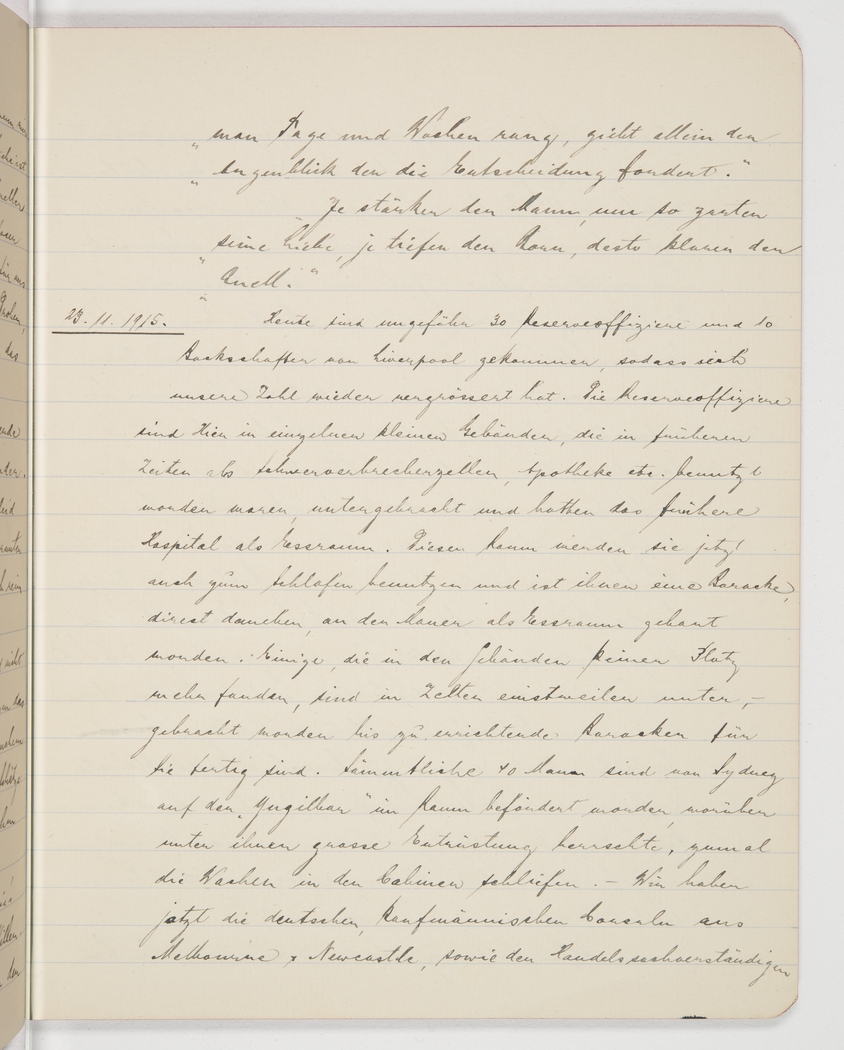 „man Tage und Wochen rang, giebt allein der
„Augenblick der die Entscheidung fordert."
„Je stärker der Mann, um so zarter
„seine Liebe, je tiefer der Born, desto klarer der
„Quell."
23.11.1915. Heute sind ungefähr 30 Reserveoffiziere und 10
Backschafter von Liverpool gekommen, sodass sich
unsere Zahl wieder vergrössert hat. Die Reserveoffiziere
sind hier in einzelnen kleinen Gebäuden, die in früheren
Zeiten als Schwerverbrecherzellen, Apotheke etc. benutzt
worden waren, untergebracht und hatten das frühere
Hospital als Essraum. Diesen Raum werden sie jetzt
auch zum Schlafen benutzen und ist ihnen eine Baracke,
direct daneben, an der Mauer als Essraum gebaut
worden. Einige, die in den Gebäuden keinen Platz
mehr fanden, sind in Zelten einstweilen unter,-
gebracht worden bis zu errichtende Baracken für
Sie fertig sind. Sämmtliche 40 Mann sind von Sydney
auf der „Yngilbar" im Raum befördert worden, worüber
unter ihnen grosse Entrüstung herrschte, zumal
die Wachen in den Cabinen schliefen. – Wir haben
jetzt die deutschen, kaufmännischen Consuln aus
Melbourne & Newcastle, sowie den Handelssachverständigen